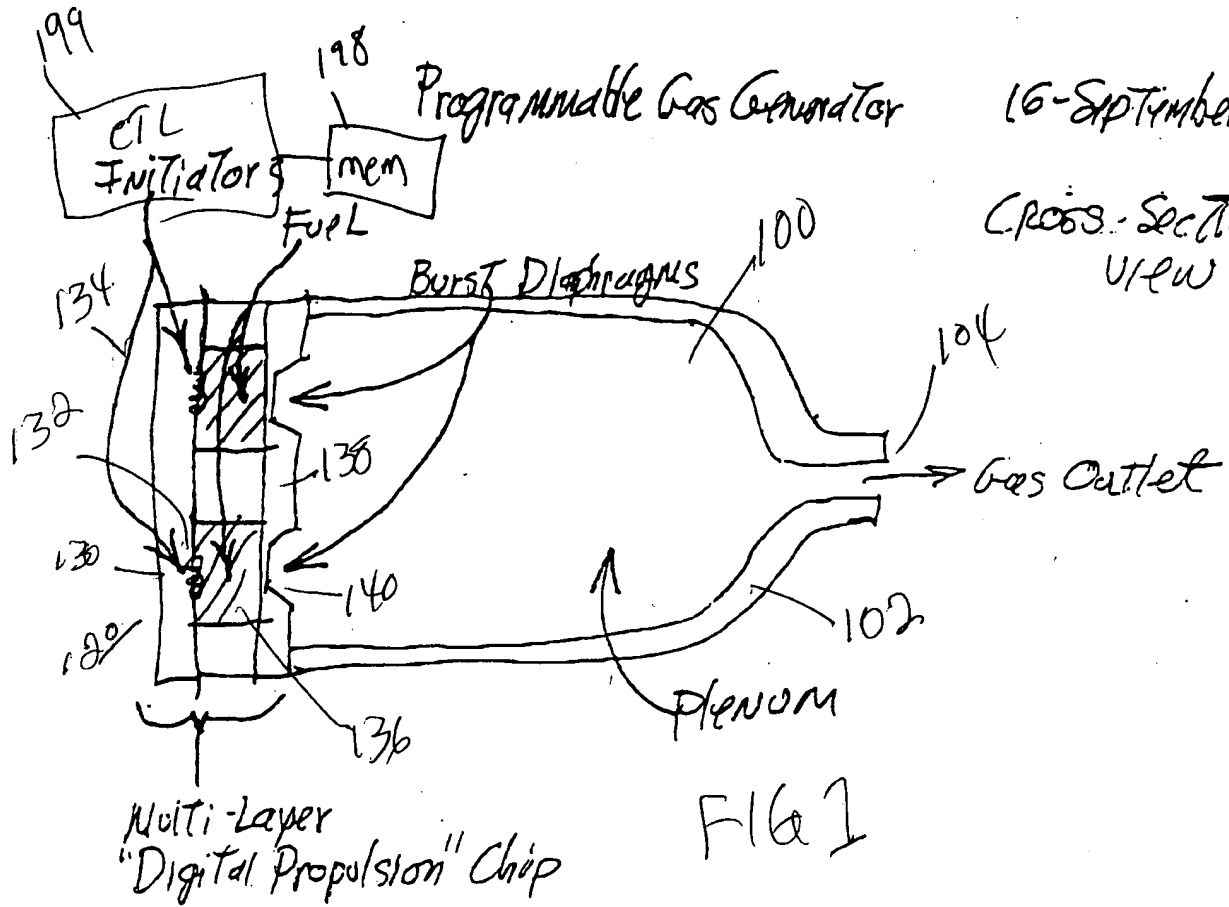 199
198
Programmable Gas Generator
16-September
CTL
Initiator
mem
Fuel
Cross-Sect
View
100
Burst Diaphragms
134
104
132
138
Gas Outlet
130
140
120
102
Plenum
136
Multi-Layer
"Digital Propulsion" Chip
FIG 1